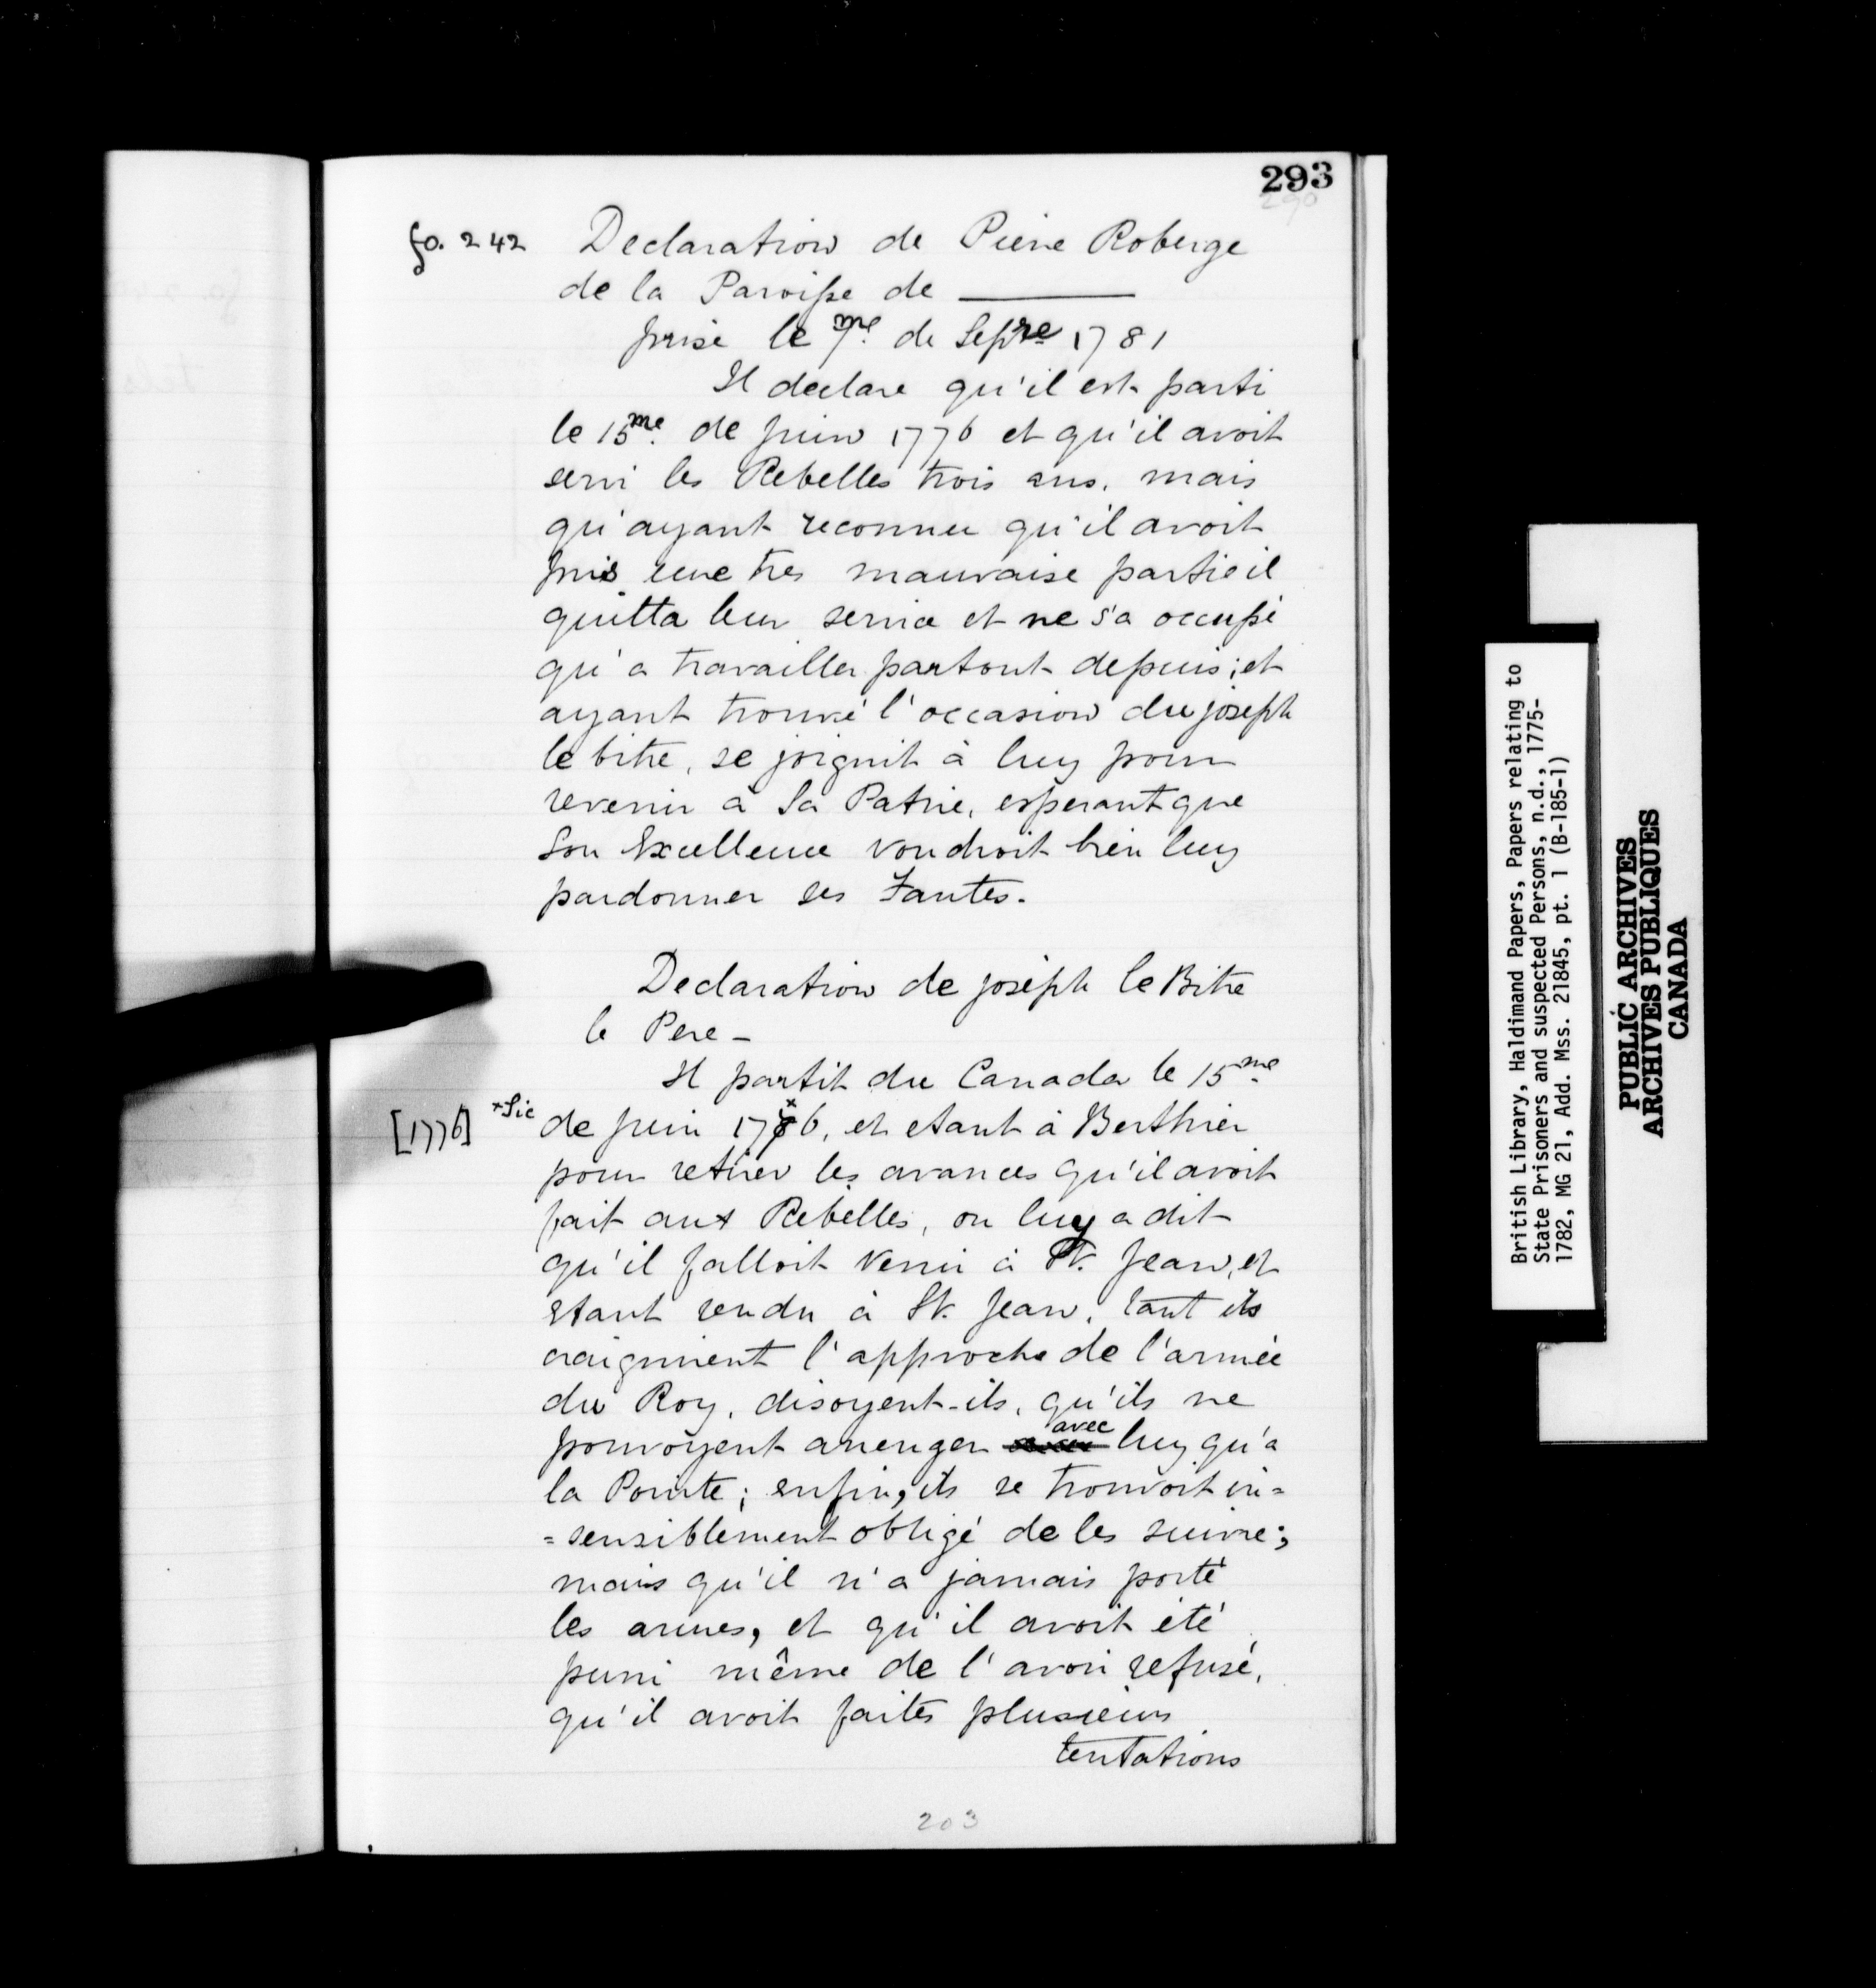 293
290
fo. 242 Declaration de Pierre Roberge
de la Paroisse de ————
prise le 7me. de Sepre 1781
Il declare qu'il est parti
le 15me. de juin 1776 et qu'il avoit
servi les Rebelles trois ans. mais
qu'ayant reconnu qu'il avoit
pris une tres mauvaise partie il
quitta leur service et ne s'a occupé
qu'a travailler partout depuis; et
ayant trouvé l'occasion du joseph
le bitre, se joignit à luy pour
revenir à Sa Patrie, esperant que
Son Excellence voudroit bien luy
pardonner ses Fautes.
Declaration de joseph le Bitre
le Pere -
Il partit du Canada le 15me.
[1776] +Sic de juin 1786, et etant à Berthier
pour retirer les avances qu'il avoit
fait aux Rebelles, on luy a dit
qu'il falloit venir à St. Jean, et
etant rendu à St. Jean, tant ils
craignirent l'approche de l'armée
du Roy, disoyent-ils, qu'ils ne
pouvoyent arrenger avec luy qu'a
la Pointe; enfin, ils se trouvoit in=
=sensiblement obligé de les suivre;
mais qu'il n'a jamais porté
les armes, et qu'il avoit été
puni même de l'avoir refusé,
qu'il avoit faites plusieurs
tentations
203
British Library, Haldimand Papers, Papers relating to
State Prisoners and suspected Persons, n.d., 1775-
1782, MG 21, Add. Mss. 21845, pt. 1 (B-185-1)
PUBLIC ARCHIVES
ARCHIVES PUBLIQUES
CANADA